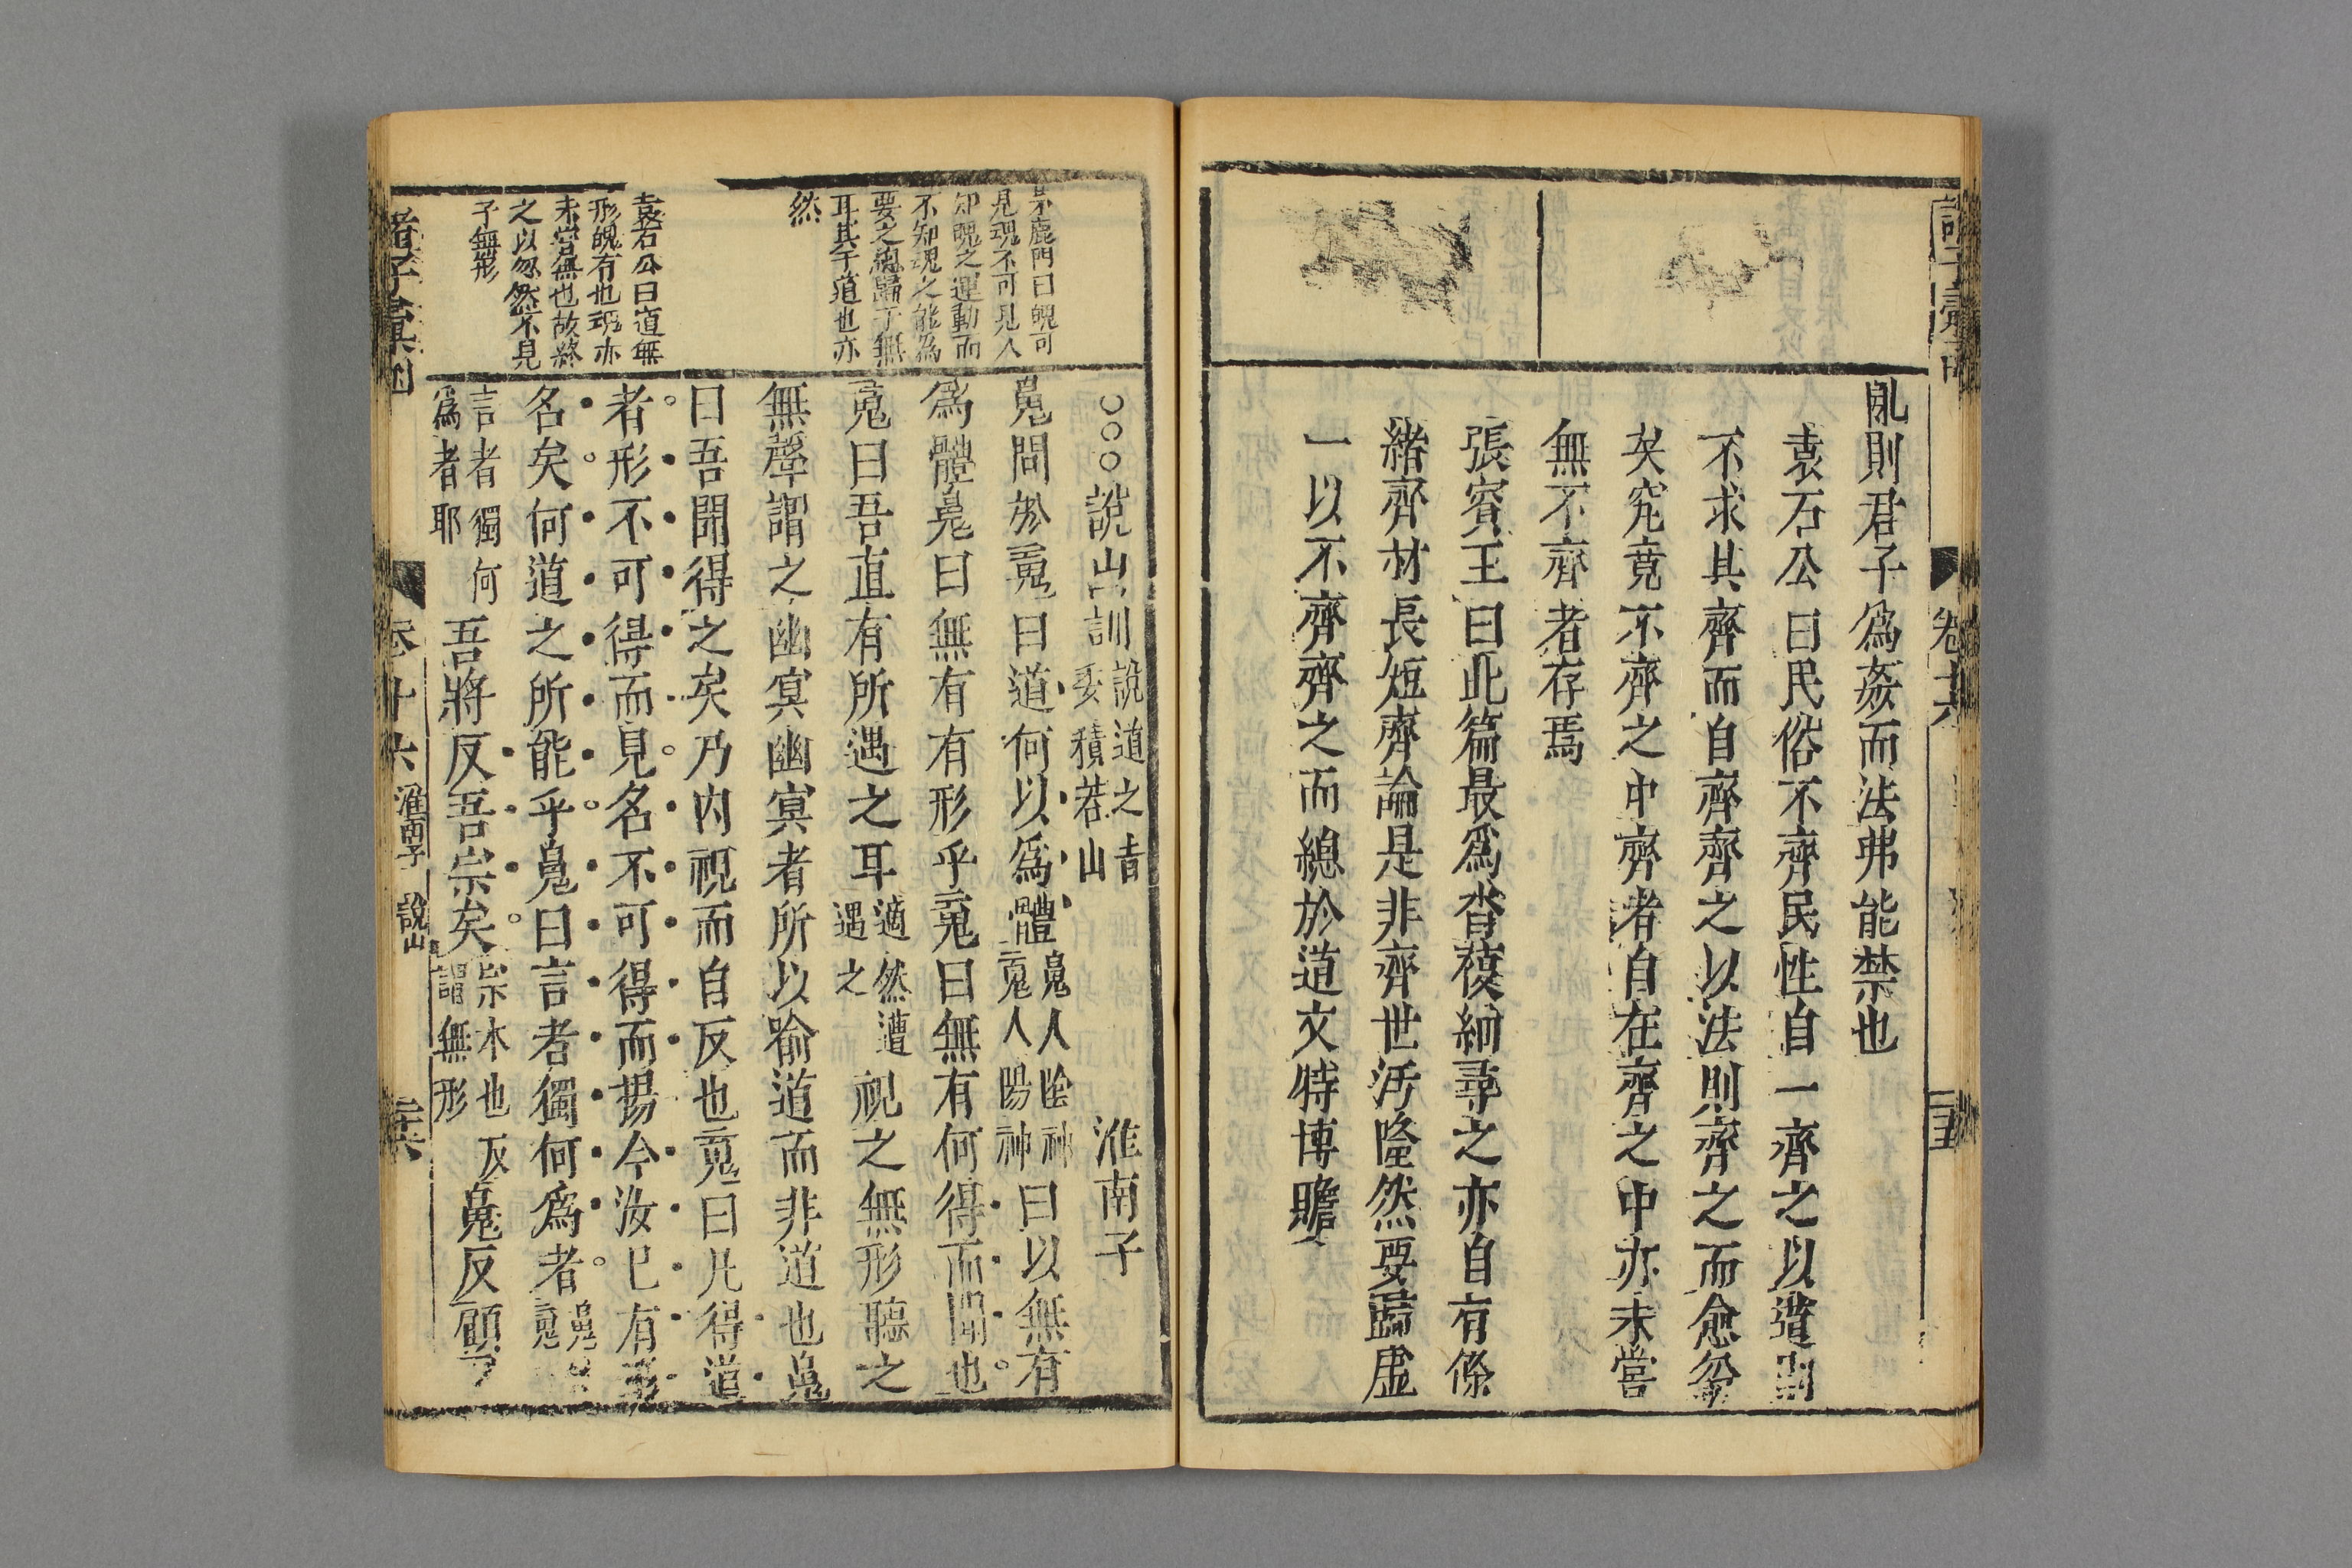 亂則君子爲姦而法弗能禁也
袁石公曰民俗不齊民性自一齊之以道則
不求其齊而自齊齊之以法則齊之而愈紛
矣究竟不齊之中齊者自在齊之中亦未嘗
無不齊者存焉
張賓王曰此篇最爲沓複細尋之亦自有條
緒齊材長短齊論是非齊世汚隆然要歸虛
一以不齊齊之而總於道文特博贍
卷十六
茅鹿門曰魄可
見魂不可見人
知魄之運動而
不知魂之能為
要之總歸于無
耳其于道也亦
然
袁石公曰道無
形魄有也魂亦
未嘗無也故終
之以忽然不見
子無形
○○○說山訓 說道之旨
委積若山 淮南子
魄問於魂曰道何以爲體 魄人陰神
魂人陽神 曰以無有
爲體魄曰無有有形乎魂曰無有何得而聞也
魂曰吾直有所遇之耳 適然遭
遇之 視之無形聽之
無聲謂之幽冥幽冥者所以喻道而非道也魄
曰吾聞得之矣乃內視而自反也魂曰凡得道
者形不可得而見名不可得而揚今汝已有形
名矣何道之所能乎魄曰言者獨何爲者
言者獨何
爲者耶 吾將反吾宗矣 宗本也反
謂無形 魄反顧
諸子彙函
卷十六 淮南子 說山 二十六